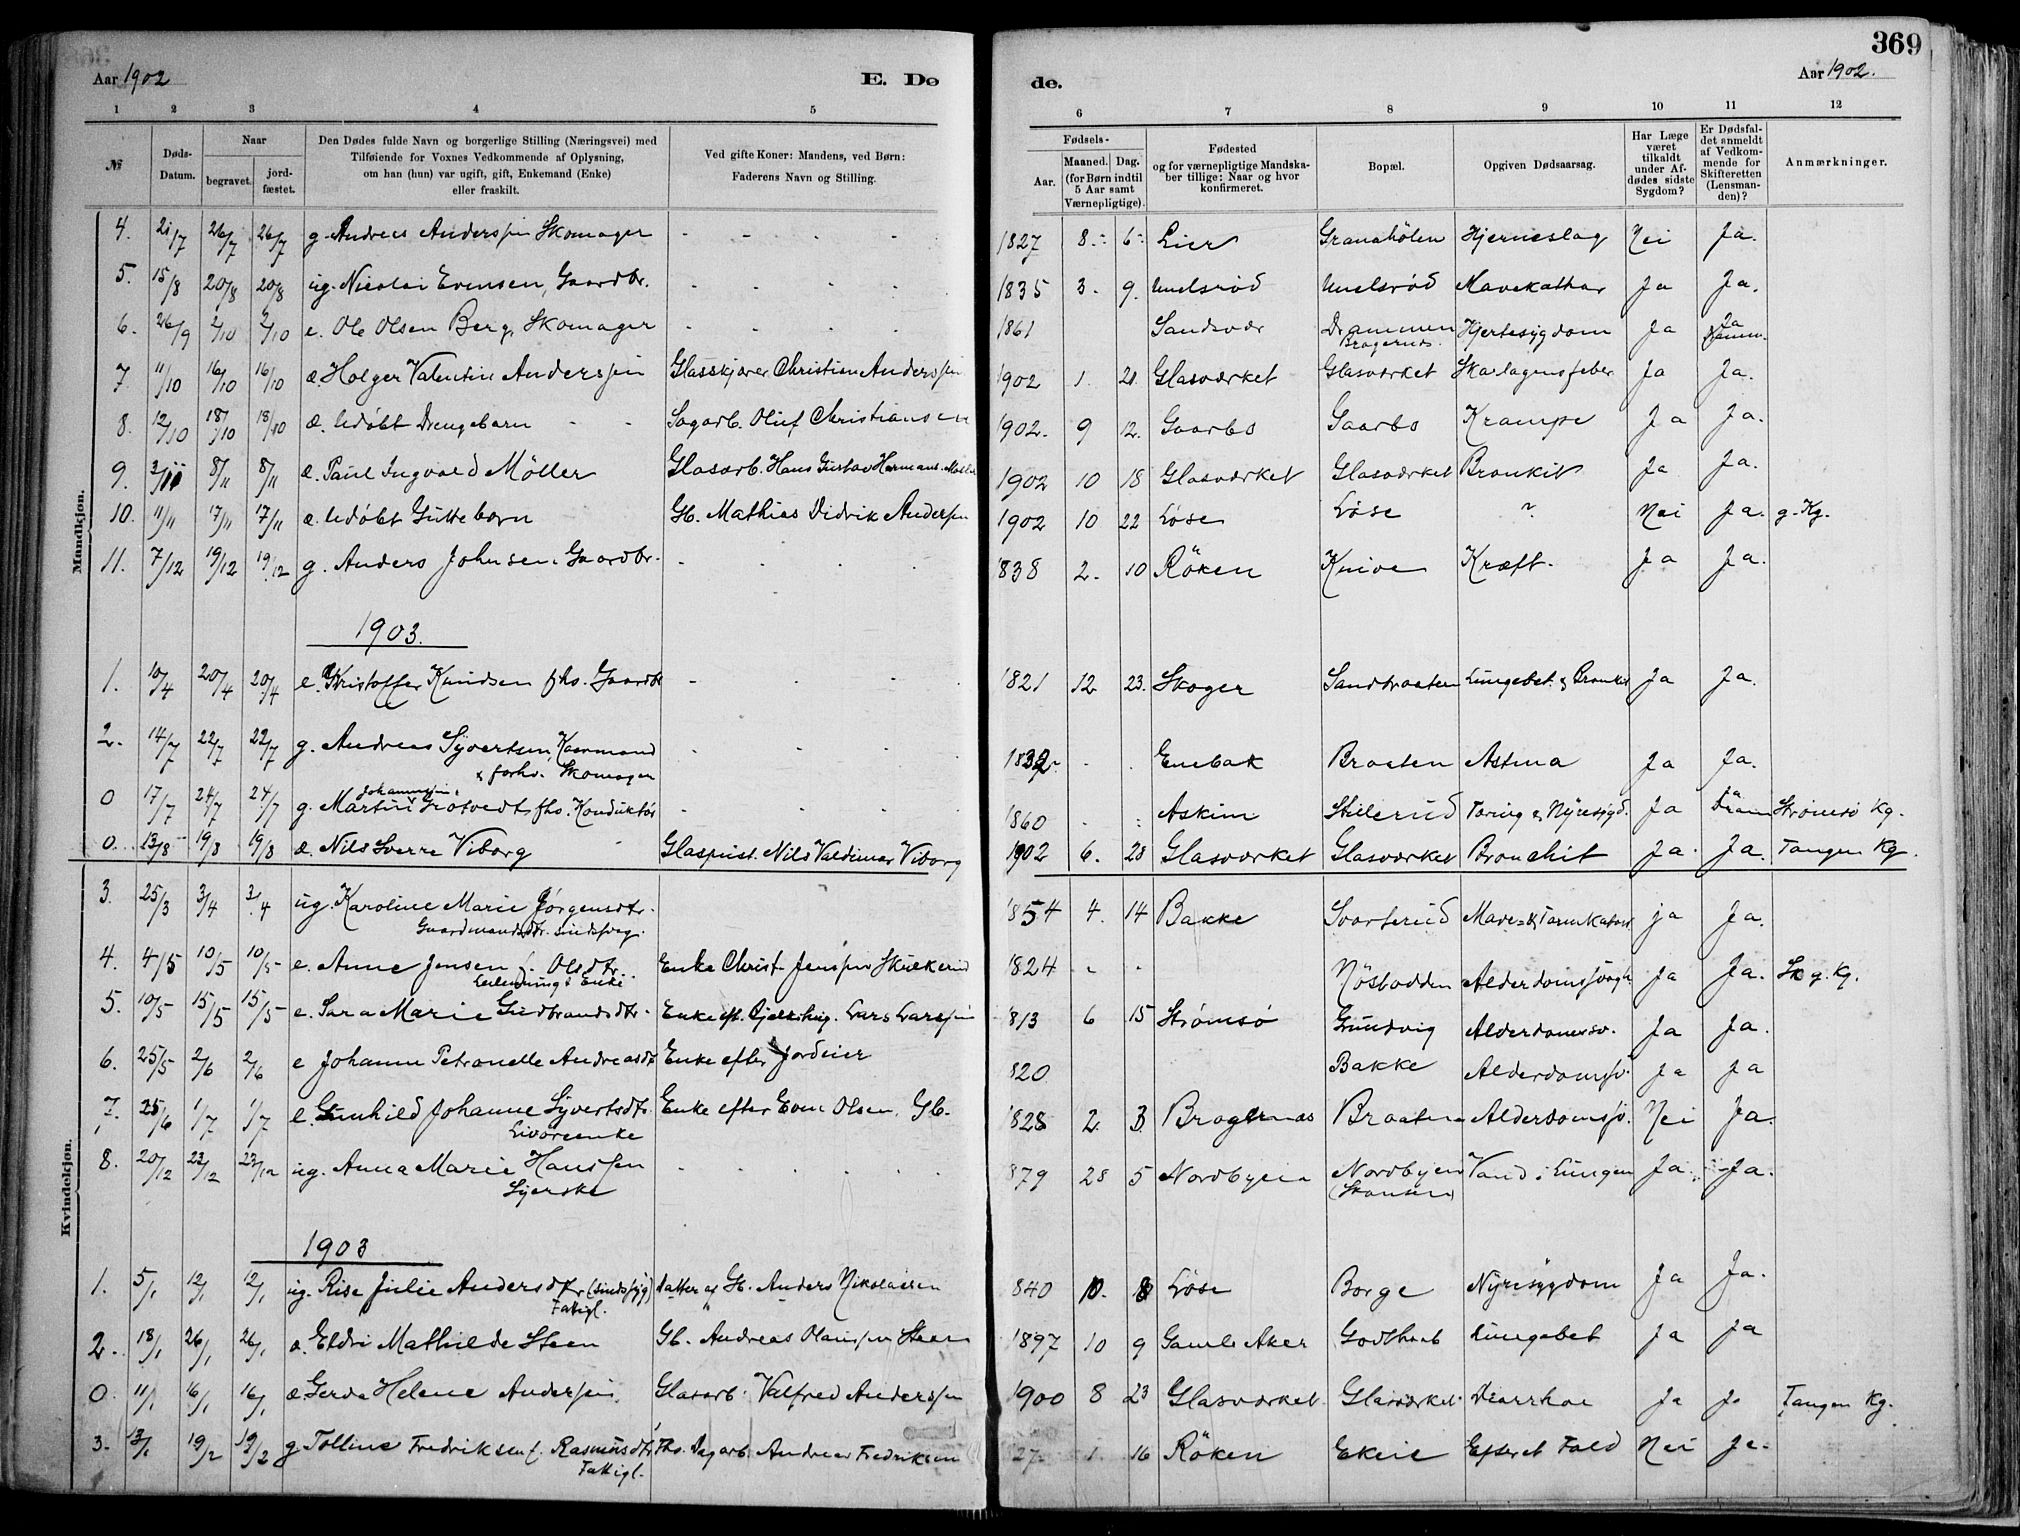 369
Aar 1902 E. Dø
de. Aar 1902.
1 2 3 4 5
6 7 8 9 10 11 12
№
Døds-Datum.
Naar
begravet.
jordfæstet.
Den Dødes fulde Navn og borgerlige Stilling (Næringsvei) med
Tilføiende for Voxnes Vedkommende af Oplysning,
om han (hun) var ugift, gift, Enkemand (Enke)
eller fraskilt.
Ved gifte Koner: Mandens, ved Børn:
Faderens Navn og Stilling.
Fødsels-
Aar.
Maaned. Dag.
(for Børn indtil
5 Aar samt
Værnepligtige).
Fødested
og for værnepligtige Mandskaber tillige: Naar og hvor
konfirmeret.
Bopæl.
Opgiven Dødsaarsag.
Har Læge været tilkaldt under Afdødes sidste Sygdom?
Er Dødsfaldet anmeldt af Vedkommende for Skifteretten (Lensmanden)?
Anmærkninger.
Mandkjøn.
4. 21/7 26/7 26/7 g. Andreas Anderssen Skomager - - - - 1827 8. 6 Lier Hjerneslag Nei Ja.
5. 15/8 20/8 20/8 ug. Nicolai Evensen, Gaardbr. - - - - 1835 3. 9. Mavekathar Ja Ja.
6. 26/9 2/10 2/10 e. Ole Olsen Berg, Skomager - - - - 1861 Sandsvær Drammen Hjertesygdom Ja Ja
Bragernes.
7. 11/10 16/10 16/10 æ. Holger Valentin Anderssen Glasskjærer Christian Anderssen 1902 1. 21. Glasværket Glasværket Skarlagensfeber Ja Ja.
8. 12/10 18/10 18/10 æ. Udøbt Drengebarn - - Sagarb. Oluf Christiansen 1902. 9 12. Gaarbo Gaarbo Krampe Ja Ja.
9. 3/11 8/11 8/11 æ. Paul Ingvald Möller Glasarb. Hans Gustav Hermans. Möller 1902 10 18 Glasværket Glasværket Bronkit Ja Ja.
10. 11/11 17/11 17/11 æ. Udøbt Guttebarn Gb. Mathias Didrik Anderssen 1902 10 22 Løse Løse ? Nei Ja. g. Kg.
11. 7/12 19/12 19/12 g. Anders Johnsen, Gaardbr. - - - 1838 2. 10 Röken Knive Kræft. Ja Ja.
1903.
1. 10/4 20/4 20/4 e. Kristoffer Knudsen fhv. Gaardbr - - - - 1821 12 23. Skoger Sandbraaten Lungebet. & Bronkit Ja Ja.
2. 14/7 22/7 22/7 g. Andreas Syvertsen, Kaarmand - - - 1832. - . Enebak Braaten Astma Ja Ja.
& forhv. Skomager
Johannessen
0 17/7 24/7 24/7 g. Martin Grotvedt, fhv. Konduktør - - - 1860 - - Askim Stillerud Tæring & Nyresygd. Ja Ja Dram Strømsø Kg.
0. 13/8 19/8 19/8 æ. Nils Sverre Viborg Glaspust. Nils Valdimar Viborg 1902 6. 28 Glasværket Glasværket Bronchit Ja. Ja. Tangen Kg.
Kvindekjøn.
3. 25/3 3/4 3/4 ug. Karoline Marie Jørgensdtr. 1854 4. 14 Bakke Svarterud Mave- & Tarmkatarrh ja Ja.
Gaardmandsdtr. sindssvag.
4. 4/5 10/5 10/5 e. Anne Jensen f. Olsdtr. Enke Christ. Jenssen Skikerud 1824 - - Nøstodden Alderdomssvagh Ja Ja. Sk g. Kg.
Leilendings Enke.
5. 10/5 15/5 15/5 e. Sara Marie Gudbrandsdtr. Enke eft. Lars Larssen 813 6 15 Strømsø Grundvig Alderdomssv. Ja Ja.
6. 25/5 2/6 2/6 e Johanne Petronelle Andreasdt Enke efter Jordeier 820 Bakke Alderdomssv. Ja Ja
7. 25/6 1/7 1/7 e. Gunhild Johanne Syvertsdtr. Enke efter Even Olsen, Gb. 1828 2. 3. Bragernes Braaten Alderdomssv. Nei Ja.
Livøreenke
8. 20/12 23/12 23/12 ug. Anna Marie Hanssen - - - - 879 28 5 Nordbyen Nordbyen Vand i Lungen Ja. Ja.
Syerske (Skansen)
1903
1. 5/1 12/1 12/1 ug. Rise Julie Andersdtr (sindssyg) datter af Gb. Anders Nikolaisen 840 10. 8 Løse Borge Nyresygdom Ja Ja.
Fattigl.
2. 18/1 26/1 26/1 æ. Eldri Mathilde Steen Gb. Andreas Olaussen Steen 1897 10 9 Gamle Aker Godthaab Lungebet Ja Ja
0. 11/1 16/1 16/1 æ Gerda Helene Anderssen. Glasarb. Valfred Anderssen 1900 8 23 Glasværket Glasværket. Diarrhoe Ja Ja Tangen Kg.
3. 13/1 19/2 19/2 g Tolline Fredriksen f. Rasmusdtr Fhv. Dagarb. Andreas Fredriksen 27 1. 16 Röken Ekeie Efter et Fald Nei Ja.
Fattigl.